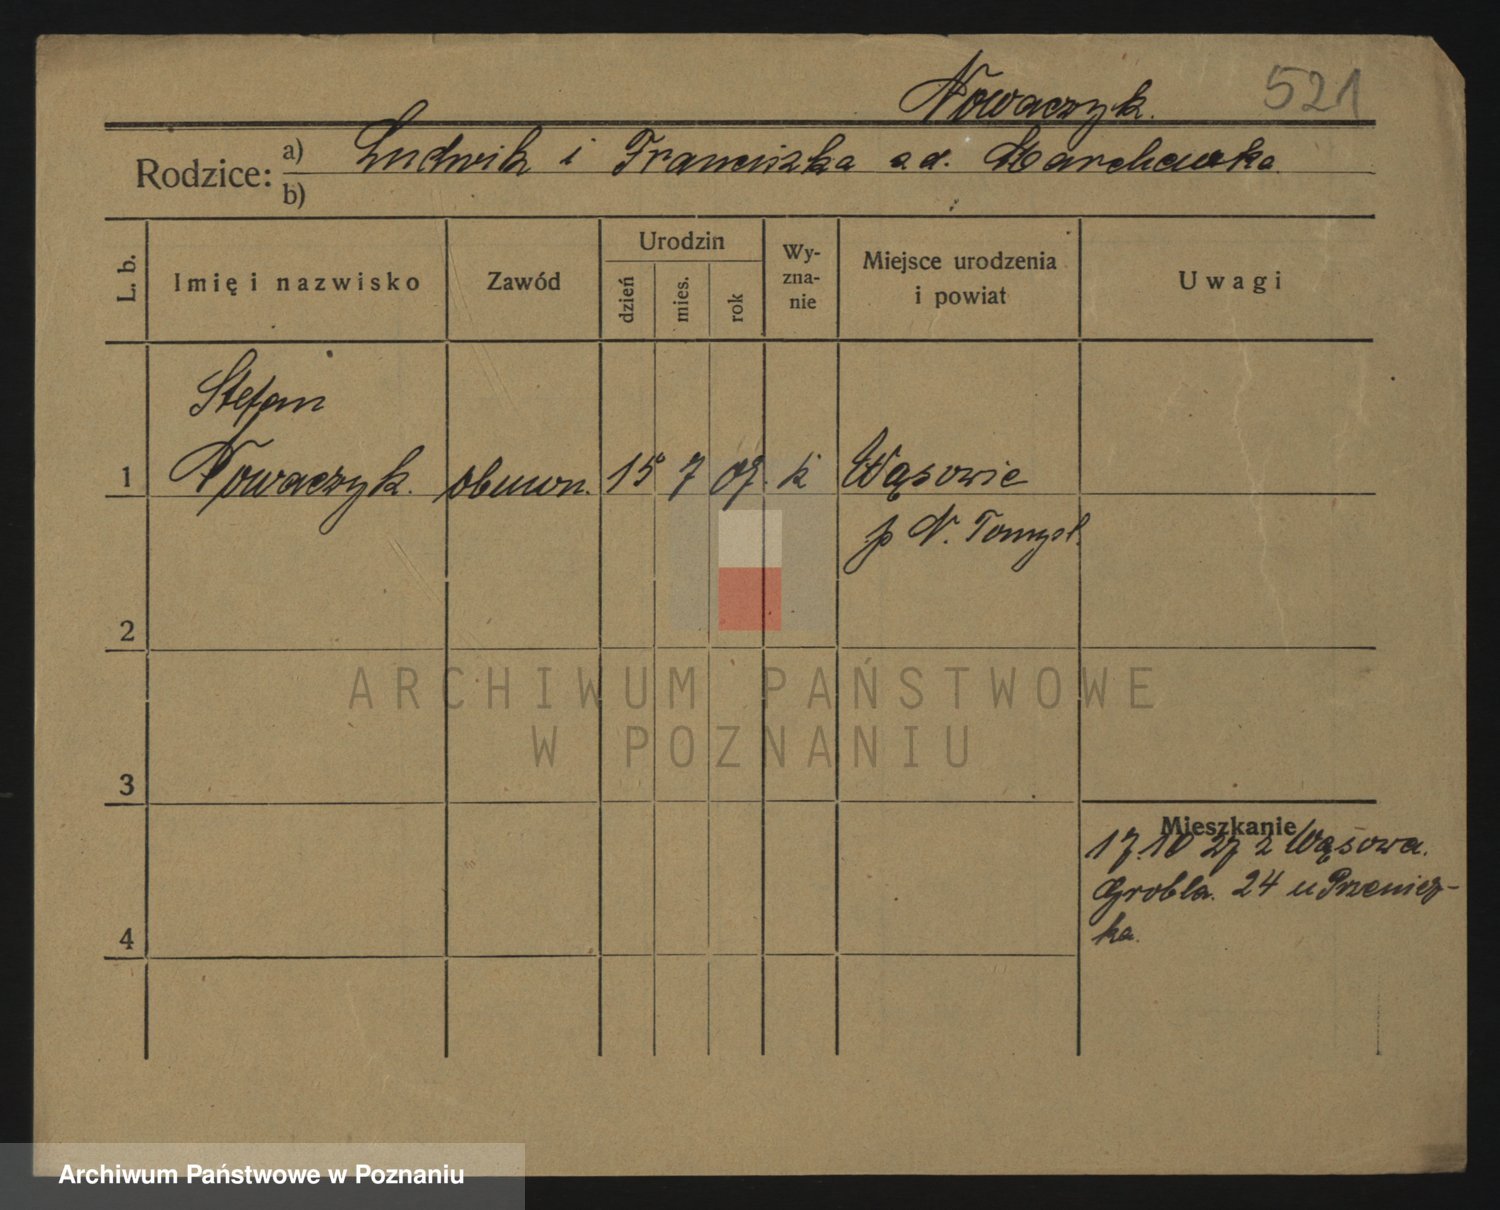 Nowaczyk. 521
Rodzice: a) Ludwik i Franciszka a d. Marchewka
b)
L. b. Imię i nazwisko Zawód Urodzin dzień mies. rok Wy-zna-nie Miejsce urodzenia i powiat Uwagi
Stefan
1 Nowaczyk. obuwn. 15 7 09. k Wąsowie
p N. Tomysl.
2
ARCHIWUM PAŃSTWOWE
W POZNANIU
3
Mieszkanie
17.10 27 z Wąsowa.
Grobla. 24 u
ka.
4
Archiwum Państwowe w Poznaniu